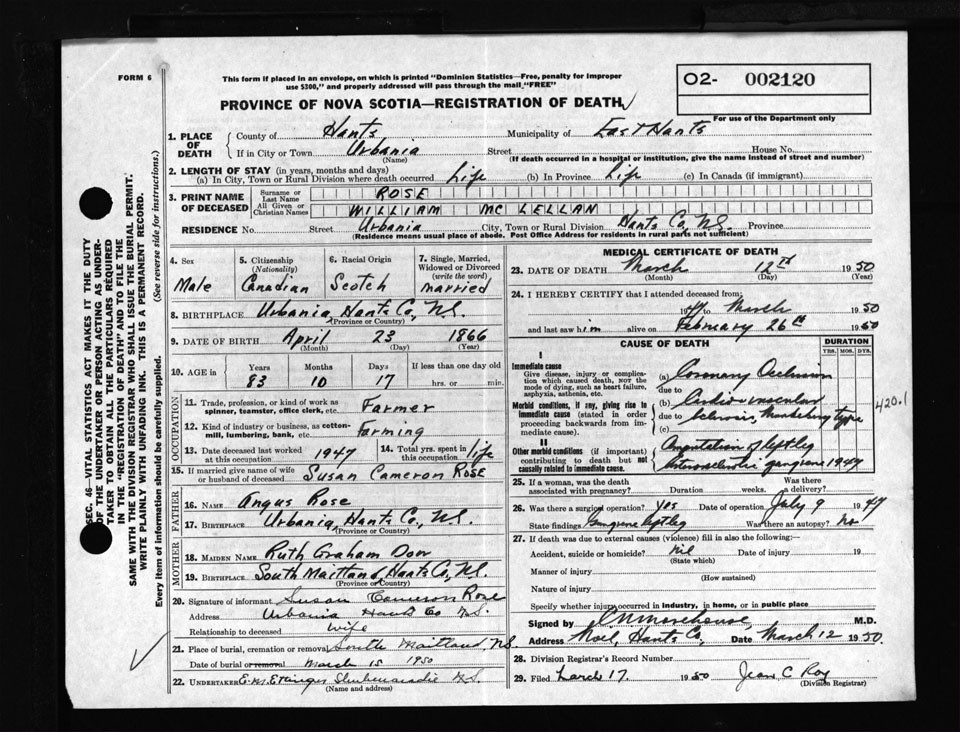 FORM 6
This form if placed in an envelope, on which is printed "Dominion Statistics—Free, penalty for improper
use $300," and properly addressed will pass through the mail "FREE"
O2- 002120
For use of the Department only
PROVINCE OF NOVA SCOTIA—REGISTRATION OF DEATH
1. PLACE OF DEATH
County of Hants Municipality of East Hants
If in City or Town Urbania Street House No.
(Name) (If death occurred in a hospital or institution, give the name instead of street and number)
2. LENGTH OF STAY (in years, months and days)
(a) In City, Town or Rural Division where death occurred Life (b) In Province Life (c) In Canada (if immigrant)
3. PRINT NAME OF DECEASED
Surname or Last Name ROSE
All Given or Christian Names WILLIAM MC LELLAN
RESIDENCE No. Street Urbania City, Town or Rural Division Hants Co, N.S. Province
(Residence means usual place of abode. Post Office Address for residents in rural parts not sufficient)
4. Sex 5. Citizenship (Nationality) 6. Racial Origin 7. Single, Married, Widowed or Divorced (write the word)
Male Canadian Scotch married
8. BIRTHPLACE Urbania, Hants Co, N.S.
(Province or Country)
9. DATE OF BIRTH April 23 1866
(Month) (Day) (Year)
10. AGE in Years Months Days If less than one day old
83 10 17 hrs. or min.
OCCUPATION
11. Trade, profession, or kind of work as spinner, teamster, office clerk, etc. Farmer
12. Kind of industry or business, as cotton-mill, lumbering, bank, etc. Farming
13. Date deceased last worked at this occupation 1947 14. Total yrs. spent in this occupation life
15. If married give name of wife or husband of deceased Susan Cameron Rose
FATHER
16. NAME Angus Rose
17. BIRTHPLACE Urbania, Hants Co., N.S.
MOTHER
18. MAIDEN NAME Ruth Graham Dow
19. BIRTHPLACE South Maitland, Hants Co, N.S.
(Province or Country)
20. Signature of informant Susan Cameron Rose
Address Urbania Hants Co N.S.
Relationship to deceased wife
21. Place of burial, cremation or removal South Maitland, N.S.
Date of burial or removal March 15 1950
22. UNDERTAKER E.M. Ettinger Shubenacadie N.S.
(Name and address)
MEDICAL CERTIFICATE OF DEATH
23. DATE OF DEATH March 12th 1950
(Month) (Day) (Year)
24. I HEREBY CERTIFY that I attended deceased from:
1947 to March 1950
and last saw him alive on February 26th 1950
CAUSE OF DEATH DURATION
YRS. MOS. DYS.
I
Immediate cause
Give disease, injury or complication which caused death, not the mode of dying, such as heart failure, asphyxia, asthenia, etc.
(a) Coronary Occlusion
due to
Morbid conditions, if any, giving rise to immediate cause (stated in order proceeding backwards from immediate cause).
(b) Cardio-vascular
due to Sclerosis, type
(c)
420.1
II
Other morbid conditions (if important) contributing to death but not causally related to immediate cause.
Amputation of left leg
gangrene 1947
25. If a woman, was the death associated with pregnancy? Duration weeks. Was there a delivery?
26. Was there a surgical operation? yes Date of operation July 9 1947
State findings Gangrene left leg Was there an autopsy? No
27. If death was due to external causes (violence) fill in also the following:—
Accident, suicide or homicide? nil Date of injury 19
(State which)
Manner of injury
(How sustained)
Nature of injury
Specify whether injury occurred in industry, in home, or in public place
Signed by Morehouse M.D.
Address Noel, Hants Co, Date March 12 1950
28. Division Registrar's Record Number
29. Filed March 17 1950 Jean C Roy
(Division Registrar)
SEC. 46—VITAL STATISTICS ACT MAKES IT THE DUTY
OF THE UNDERTAKER OR PERSON ACTING AS UNDERTAKER TO OBTAIN ALL THE PARTICULARS REQUIRED
IN THE "REGISTRATION OF DEATH" AND TO FILE THE
SAME WITH THE DIVISION REGISTRAR WHO SHALL ISSUE THE BURIAL PERMIT.
WRITE PLAINLY WITH UNFADING INK. THIS IS A PERMANENT RECORD.
Every item of information should be carefully supplied. (See reverse side for instructions.)